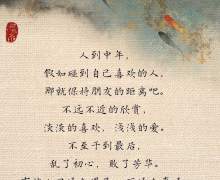 人到中年，
假如碰到自己喜欢的人，
那就保持朋友的距离吧。
不远不近的欣赏，
淡淡的喜欢，浅浅的爱。
不至于到最后，
乱了初心，散了芳华。